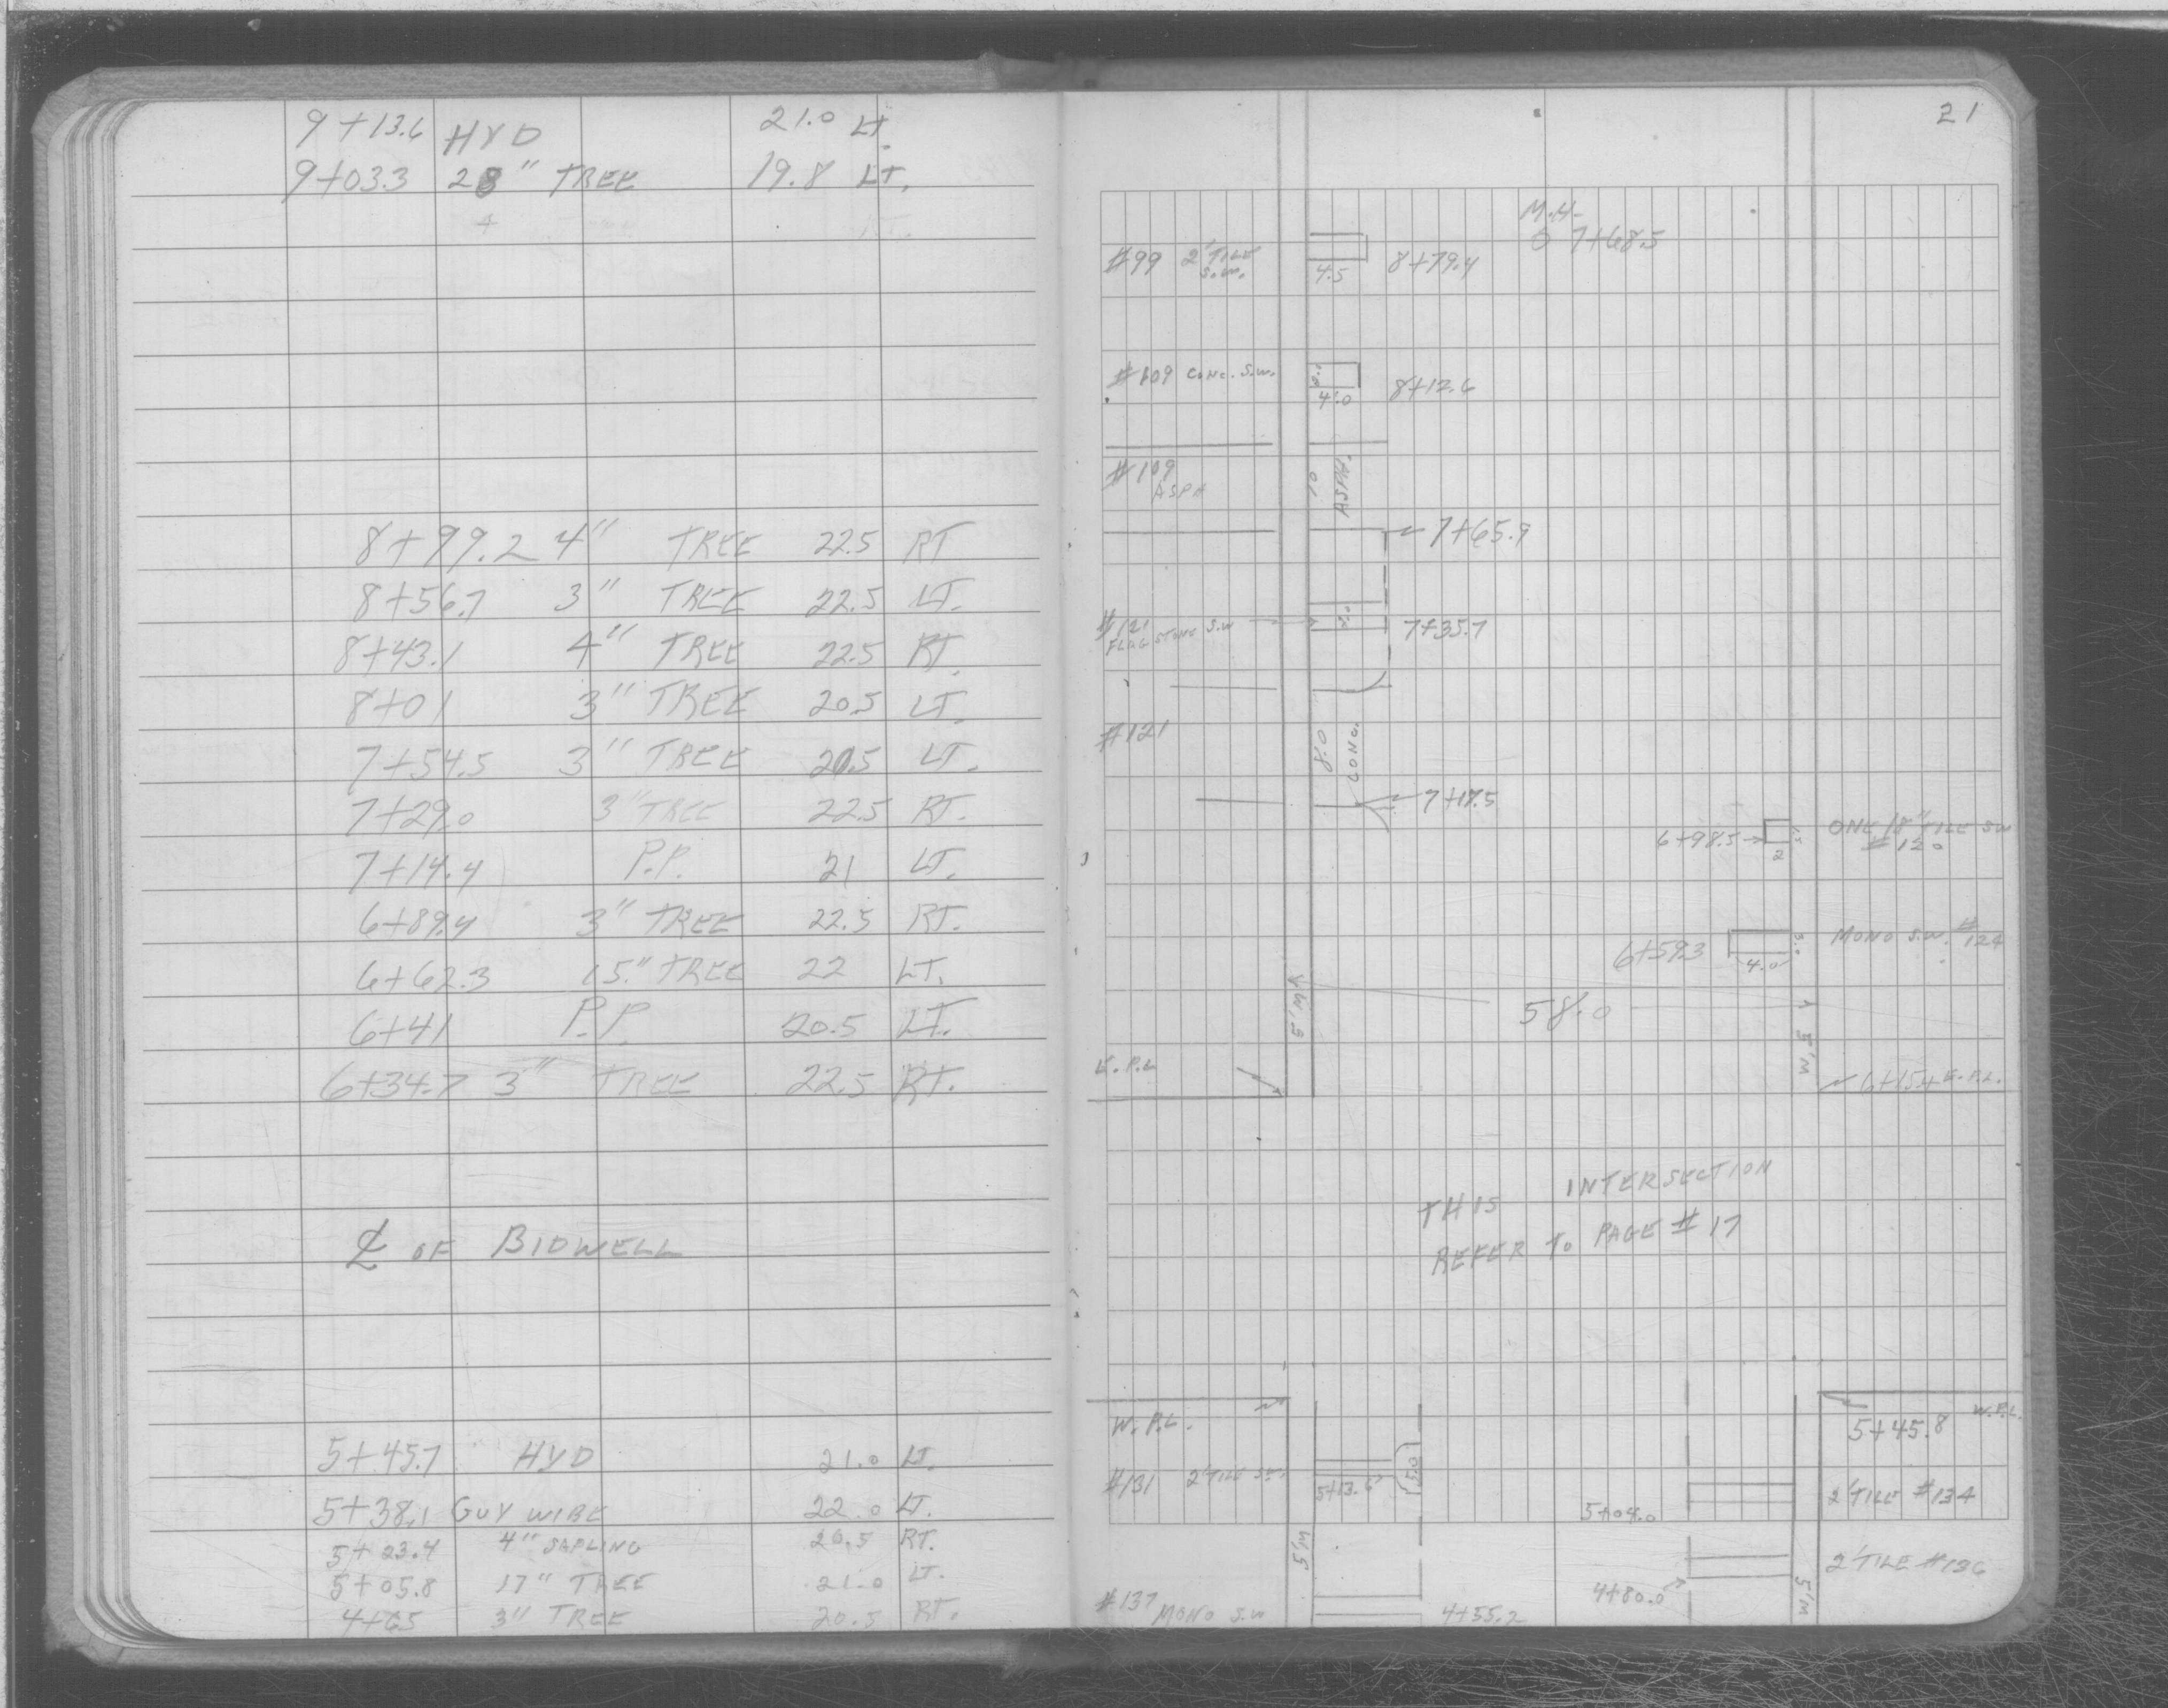 9+13.6 HYD 21.0 LT.
9+03.3 28" TREE 19.8 LT.
8+99.2 4" TREE 22.5 RT
8+56.7 3" TREE 22.5 LT.
8+43.1 4" TREE 22.5 RT.
8+01 3" TREE 20.5 LT.
7+54.5 3" TREE 20.5 LT.
7+29.0 3" TREE 22.5 RT.
7+14.4 P.P. 21 LT.
6+89.4 3" TREE 22.5 RT.
6+62.3 15." TREE 22 LT.
6+41 P.P. 20.5 LT.
6+34.7 3" TREE 22.5 RT.
℄ OF BIDWELL
5+45.7 HYD 21.0 LT.
5+38.1 GUY WIRE 22.0 LT.
5+23.4 4" SAPLING 20.5 RT.
5+05.8 17" TREE 21.0 LT.
4+65 3" TREE 20.5 RT.
21
M.H.
7+68.5
#99 2' TILE S.W. 4.5 8+79.4
#109 CONC. S.W. 4.0 8+12.6
#109 ASPH 10 ASPH.
7+65.9
#121 FLAGSTONE S.W 7+35.7
#121 8.0 CONC.
7+17.5
6+98.5 2 1.5 ONE 18" TILE SW #120
6+59.3 4.0 3.0 MONO S.W. #124
5'M 58.0 5'M
E.P.L. 6+15.4 E.P.L.
THIS INTERSECTION
REFER TO PAGE #17
W.P.L. 5+45.8 W.P.L.
#131 2' TILE S.W. 5+13.6 5.0 5+04.0 2' TILE #134
5'M 4+80.0 2' TILE #136
#137 MONO S.W 4+55.2 5'M